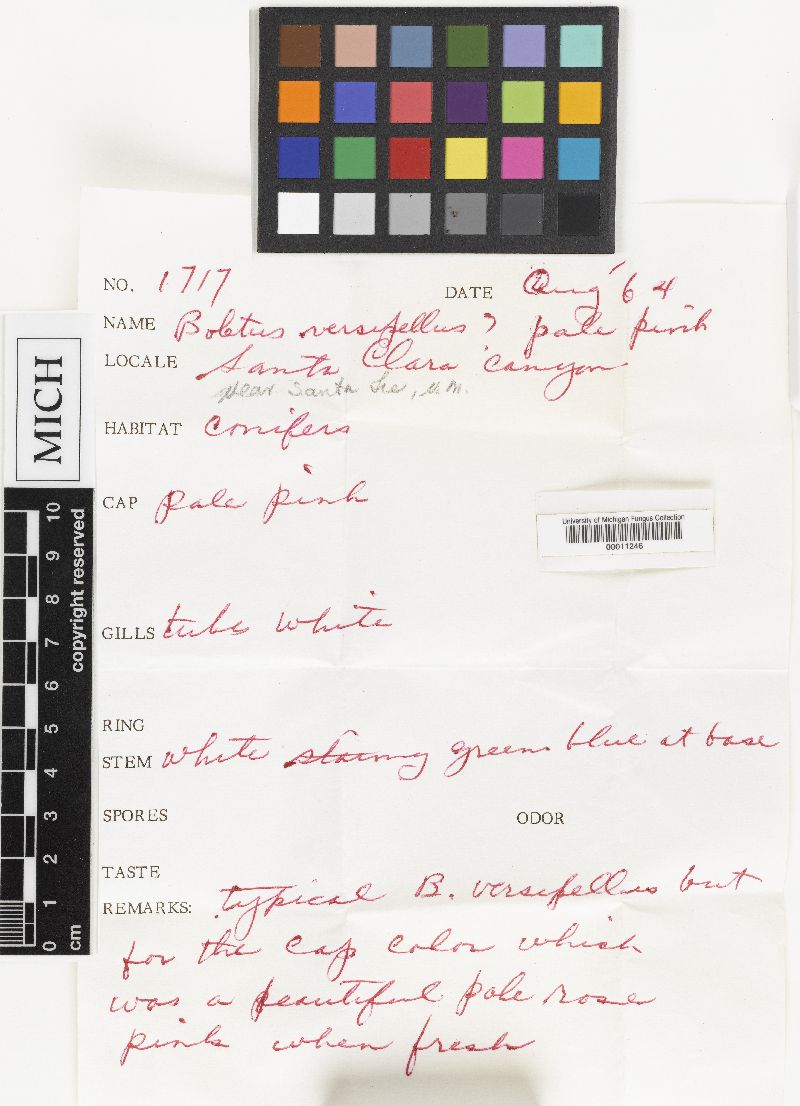 NO. 1717 DATE Aug '64
NAME Boletus versipellus? pale pink
LOCALE Santa Clara canyon
near Santa Fe, N.M.
HABITAT conifers
CAP pale pink
University of Michigan Fungus Collection
00011246
GILLS tubes white
RING
STEM white staining green blue at base
SPORES ODOR
TASTE
REMARKS: typical B. versipellus but
for the cap color which
was a beautiful pale rose
pink when fresh
MICH
0 1 2 3 4 5 6 7 8 9 10
cm
copyright reserved